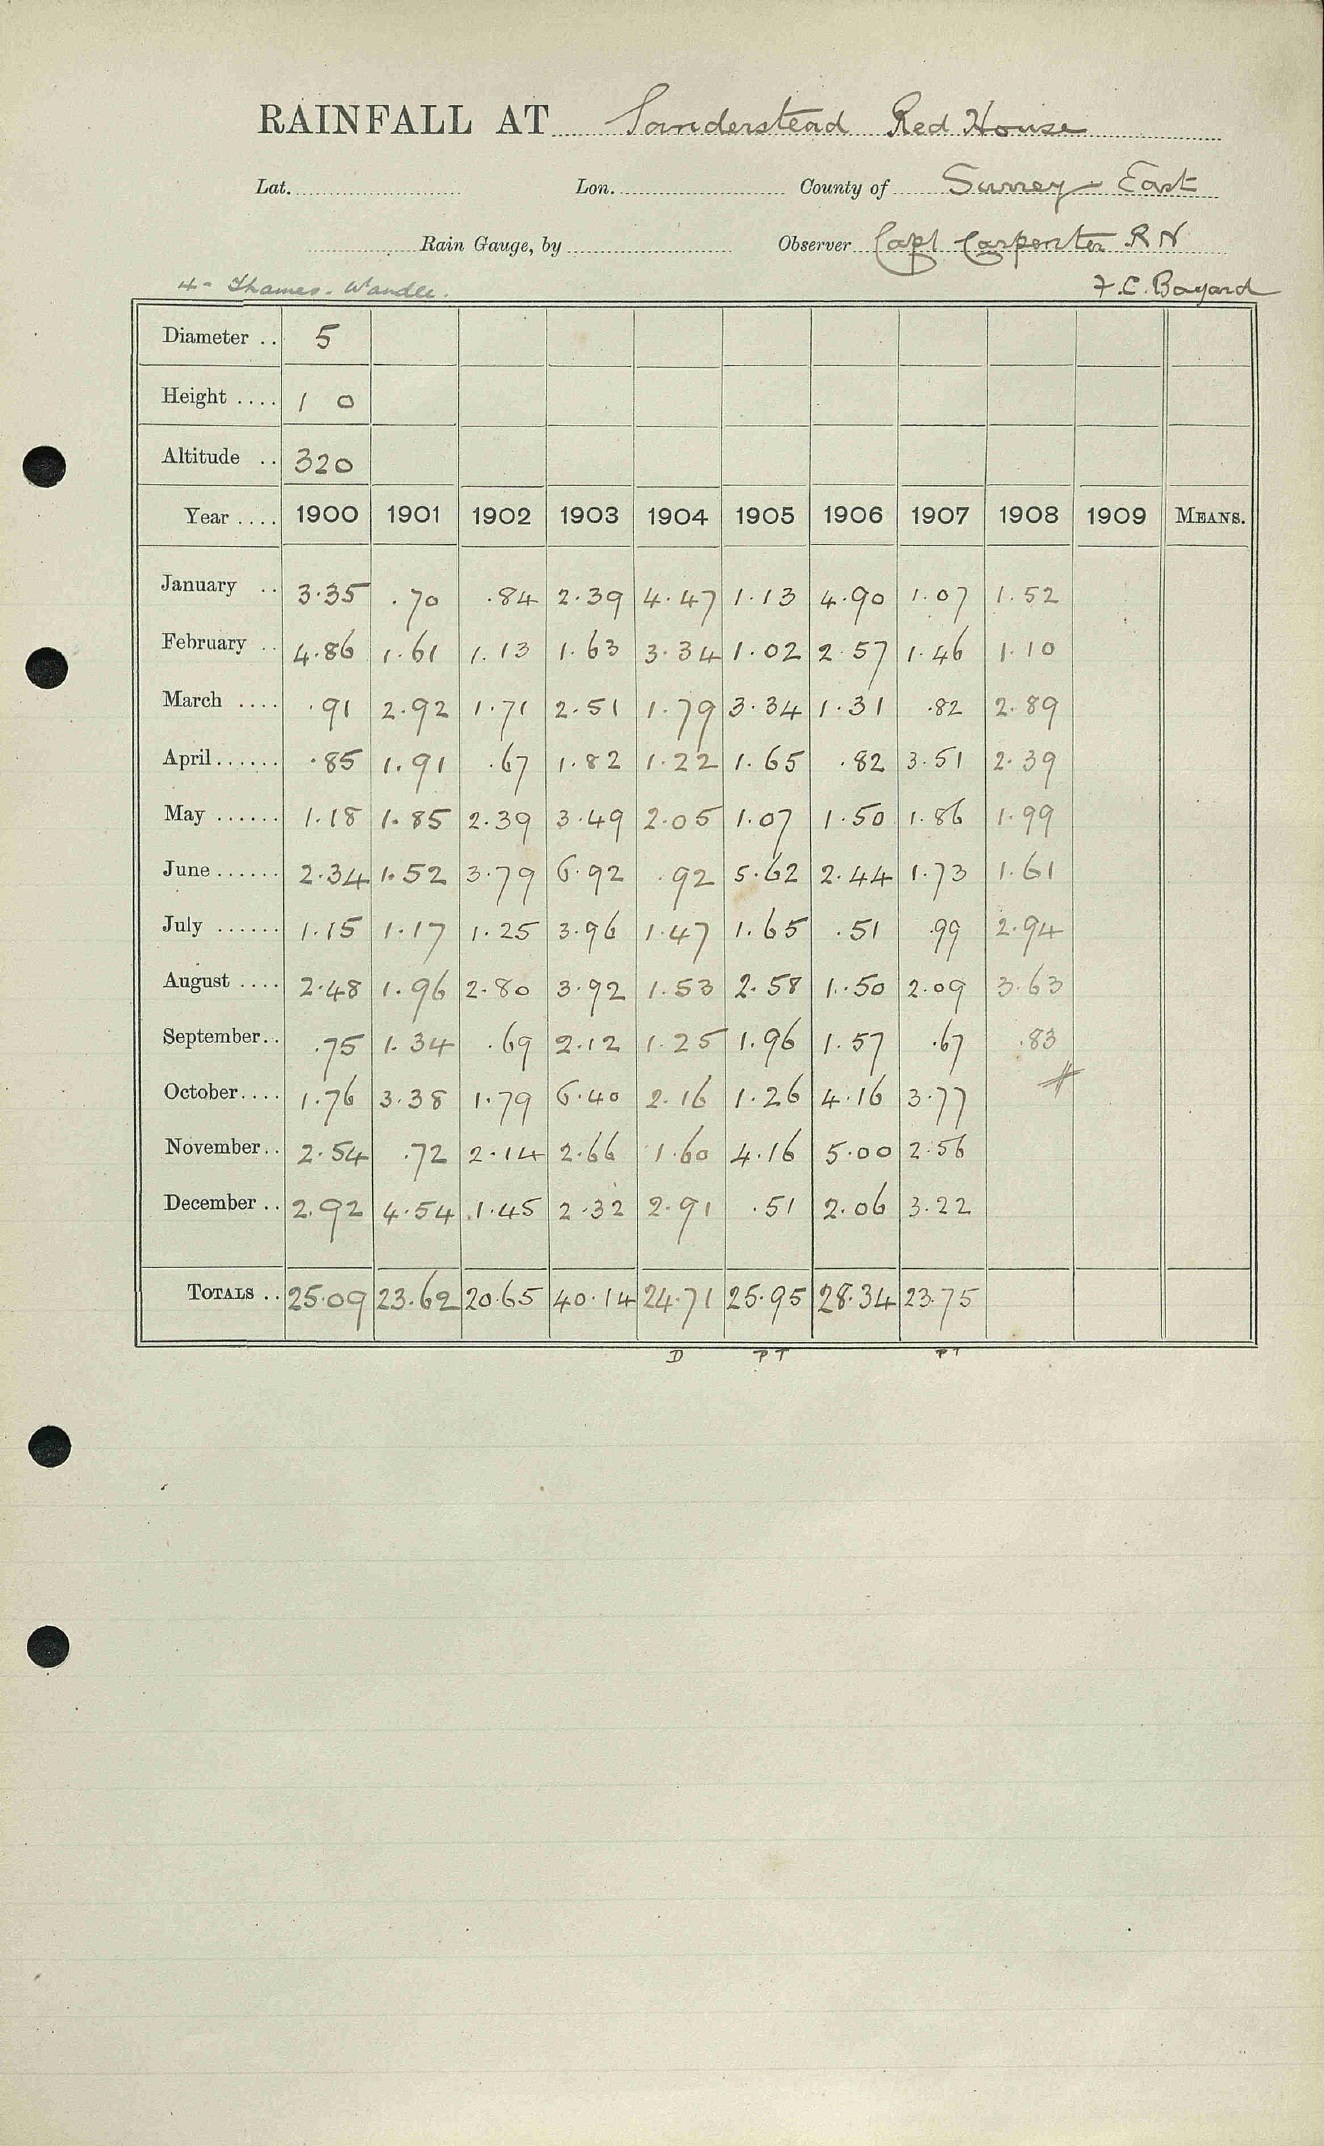 RAINFALL AT Sanderstead Red House
Lat. Lon. County of Surrey - East
Rain Gauge, by Observer Capt Carpenter RN
4 - Thames - Wandle. F.C. Bayard
Diameter .. 5
Height .... 1 0
Altitude .. 320
Year .... 1900 1901 1902 1903 1904 1905 1906 1907 1908 1909 MEANS.
January .. 3.35 .70 .84 2.39 4.47 1.13 4.90 1.07 1.52
February .. 4.86 1.61 1.13 1.63 3.34 1.02 2.57 1.46 1.10
March .... .91 2.92 1.71 2.51 1.79 3.34 1.31 .82 2.89
April...... .85 1.91 .67 1.82 1.22 1.65 .82 3.51 2.39
May ...... 1.18 1.85 2.39 3.49 2.05 1.07 1.50 1.86 1.99
June ...... 2.34 1.52 3.79 6.92 .92 5.62 2.44 1.73 1.61
July ...... 1.15 1.17 1.25 3.96 1.47 1.65 .51 .99 2.94
August .... 2.48 1.96 2.80 3.92 1.53 2.58 1.50 2.09 3.63
September.. .75 1.34 .69 2.12 1.25 1.96 1.57 .67 .83
October.... 1.76 3.38 1.79 6.40 2.16 1.26 4.16 3.77
November.. 2.54 .72 2.14 2.66 1.60 4.16 5.00 2.56
December .. 2.92 4.54 1.45 2.32 2.91 .51 2.06 3.22
TOTALS .. 25.09 23.62 20.65 40.14 24.71 25.95 28.34 23.75
D PT PT